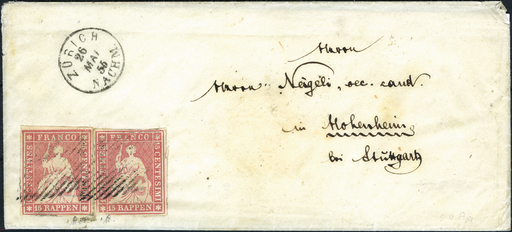 ZÜRICH
26
MAI
55
NACHM.
Herrn
Herrn Nägeli, oec. cand.
in Hohenheim
bei Stuttgart
FRANCO FRANCO
CENTIMES 15 CENTESIMI
15 RAPPEN 15 RAPPEN